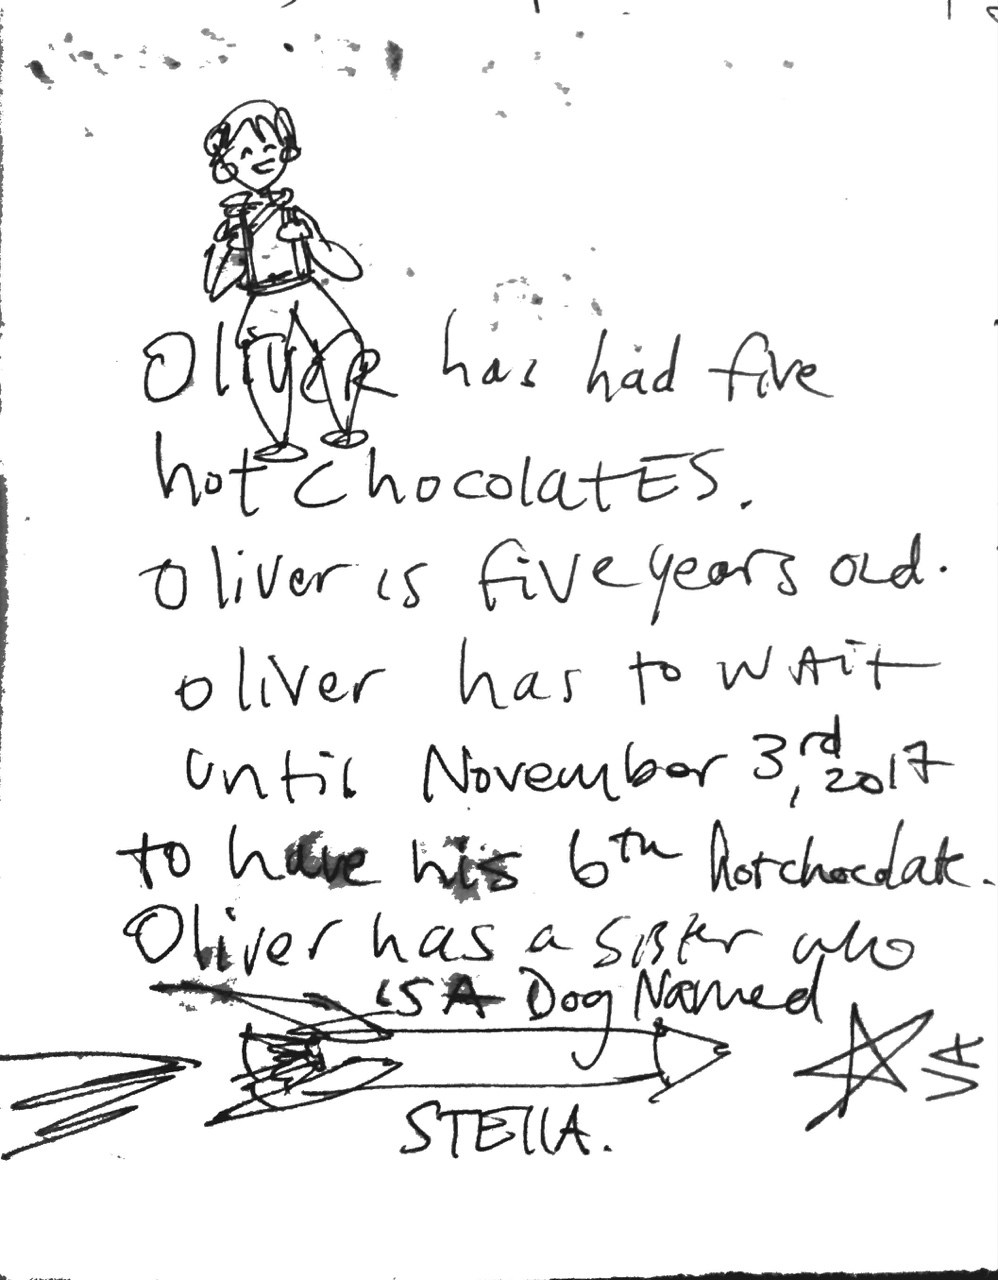 Oliver has had five
hot chocolatES.
Oliver is five years old.
oliver has to wAit
until November 3rd, 2017
to have his 6th hotchocolate.
Oliver has a sister who
is A Dog Named
STEllA.